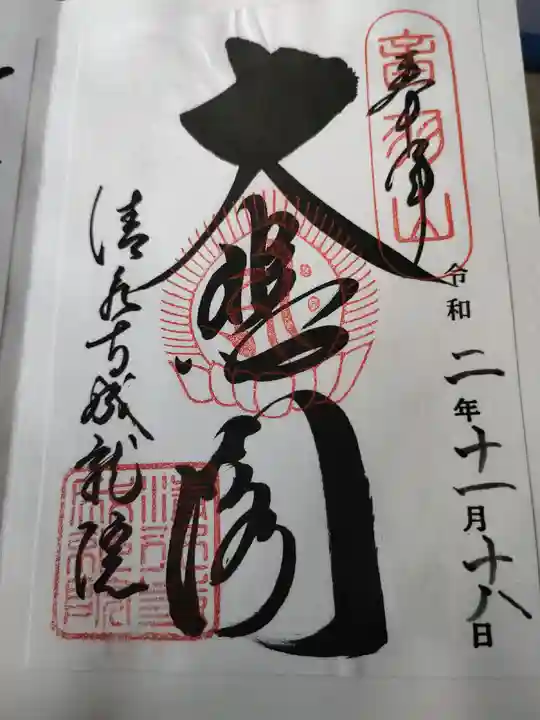 奉拝
音羽山
令和二年十一月十八日
大悲閣
清水寺成就院